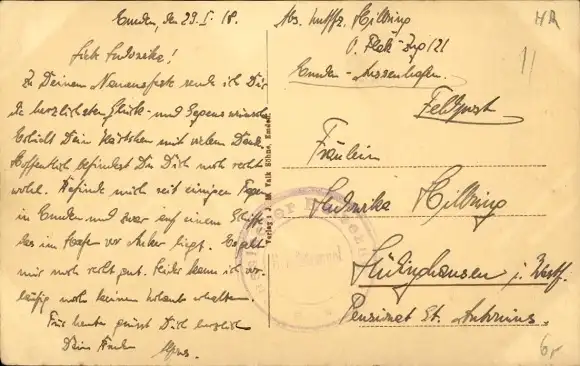 Emden, den 29.I.18.
Liebe Ludowika!
Zu Deinem Namensfeste sende ich Dir
die herzlichsten Glück- und Segenswünsche
Erhielt Dein Kärtchen mit vielem Dank.
Hoffentlich befindest Du Dich noch recht
wohl. Befinde mich seit einigen Tagen
in Emden und zwar auf einem Schiffe
das im Hafen vor Anker liegt. Es geht
mir noch recht gut. Leider kann ich vor-
läufig noch keinen Urlaub erhalten.
Für heute grüsst Dich herzlich
Dein
Verlag v. J. M. Valk Söhne, Emden
Abs. Hilbing
Flak-Zug 121
Emden-Aussenhafen.
Feldpost
Fräulein
Ludowika Hilbing
Lüdinghausen i. Westf.
Pensionat St. Antonius.
HR
11